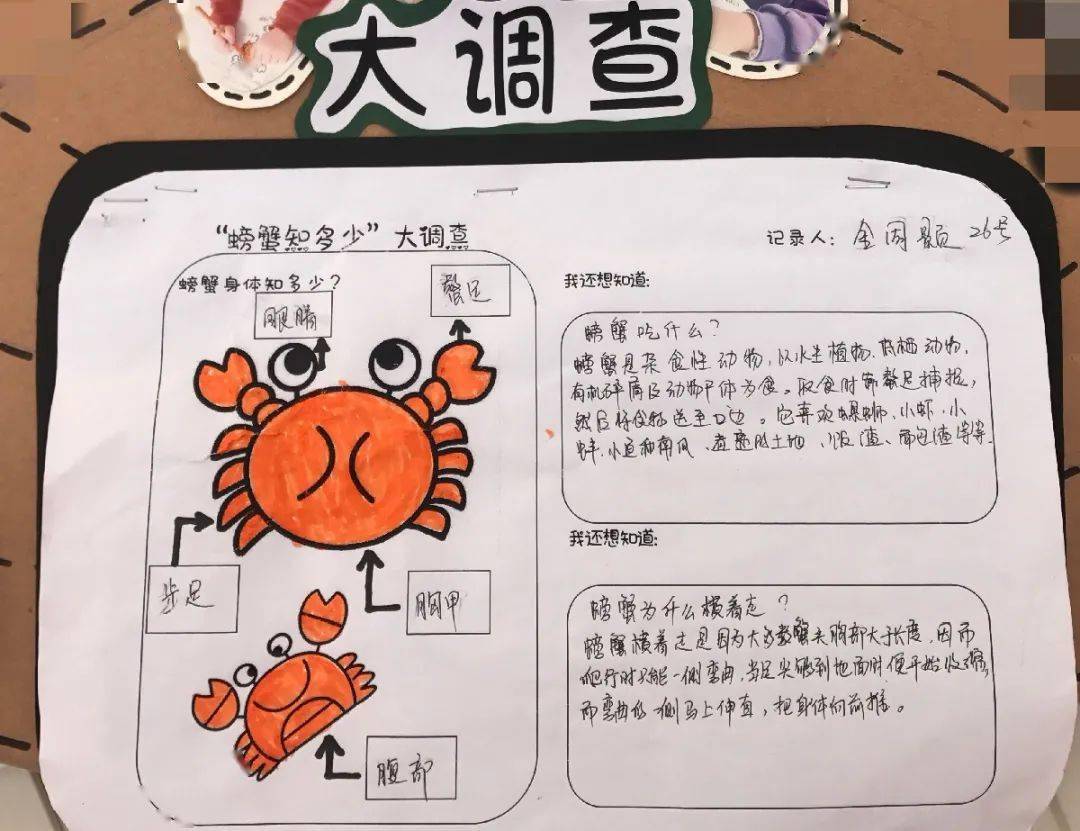 大调查
“螃蟹知多少”大调查
记录人: 金因颢 26号
螃蟹身体知多少?
眼睛
螯足
步足
胸甲
腹部
我还想知道:
螃蟹吃什么?
螃蟹是杂食性动物,以水生植物、底栖动物,
有机碎屑及动物尸体为食。取食时靠螯足捕捉,
然后将食物送至口边。它喜欢螺蛳、小虾、小
蚌、小鱼和南瓜、煮熟的土地、饭渣、面包渣等等
我还想知道:
螃蟹为什么横着走?
螃蟹横着走是因为大多数蟹头胸部大于长度,因而
爬行时只能一侧弯曲,当足尖够到地面时便开始收缩,
而弯曲的一侧马上伸直,把身体向前推。